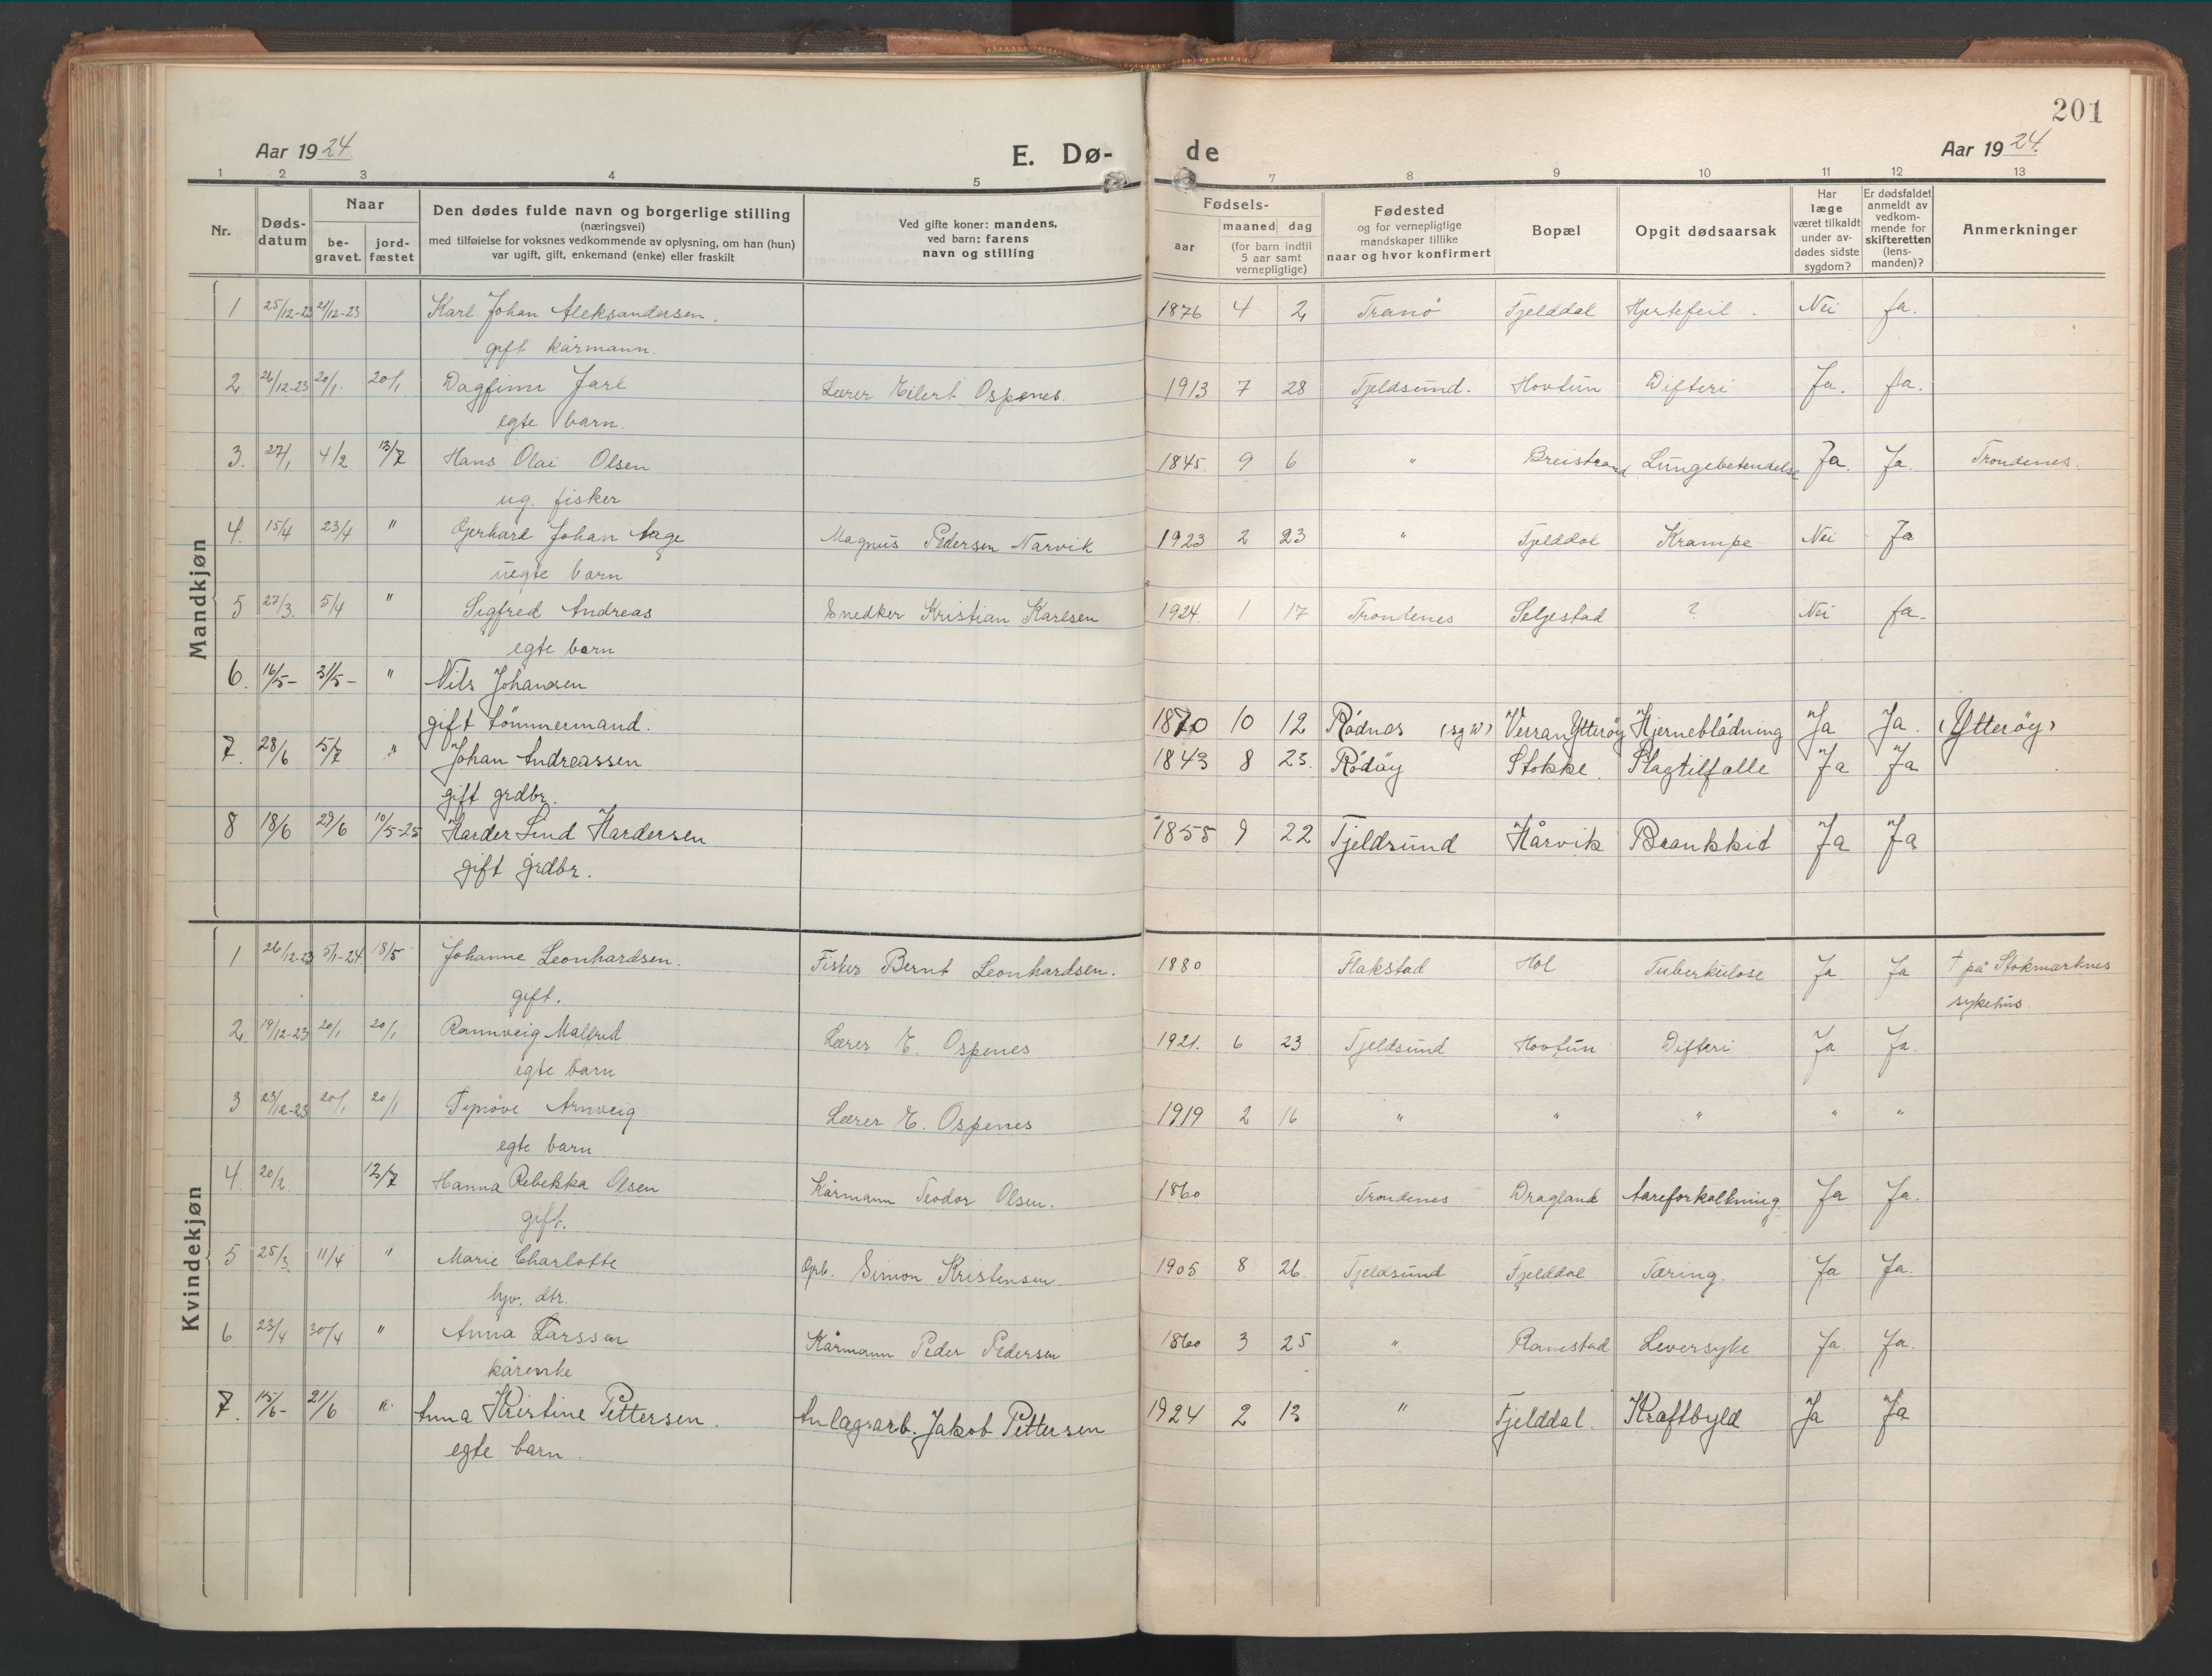 201
Aar 1924 E. Dø- de Aar 1924.
1 2 3 4 5 7 8 9 10 11 12 13
Nr. Døds-datum Naar be-gravet. jord-fæstet Den dødes fulde navn og borgerlige stilling (næringsvei) med tilføielse for voksnes vedkommende av oplysning, om han (hun) var ugift, gift, enkemand (enke) eller fraskilt Ved gifte koner: mandens, ved barn: farens navn og stilling Fødsels- aar maaned dag (for barn indtil 5 aar samt vernepligtige) Fødested og for vernepligtige mandskaper tillike naar og hvor konfirmert Bopæl Opgit dødsaarsak Har læge været tilkaldt under av-dødes sidste sygdom? Er dødsfaldet anmeldt av vedkom-mende for skifteretten (lens-manden)? Anmerkninger
Mandkjøn
1 25/12-23 21/12-23 Karl Johan Aleksandersen. 1876 4 2 Tranö Fjelddal Hjertefeil. Nei Ja.
gift kårmann.
2 26/12-23 20/1. 20/1 Dagfinn Jarl Lærer Eilert Ospenes. 1913 7 28 Tjeldsund. Hovtun Difteri Ja. Ja.
egte barn.
3. 27/1 4/2 13/7 Hans Olai Olsen 1845 9 6 " Breistrand Lungebetendelse Ja. Ja. Trondenes.
ug. fisker
4. 15/4 23/4 " Gerhard Johan Aage Magnus Pedersen Narvik 1923 2 23 " Fjelddal Krampe Nei Ja
uegte barn
5 27/3. 5/4 " Sigfred Andreas Snedker Kristian Karlsen 1924. 1 17 Trondenes Seljestad ? Nei Ja.
egte barn
6. 16/5- 31/5- " Nils Johansen
gift tömmermand. 1870 10 12 Rödnes Verran Ytteröy Hjerneblödning Ja Ja. (Ytteröy)
7. 28/6 5/7 " Johan Andreassen 1843 8 23. Rödöy Stokke. Slagtilfalle Ja Ja
gift grdbr.
8 18/6 29/6 10/5-25 Harder Lind Hardersen 1855 9 22 Tjeldsund Hårvik Brankkit Ja Ja
gift grdbr.
Kvindekjøn
1 26/12-23 5/1-24 18/5 Johanne Leonhardsen. Fisker Bernt Leonhardsen. 1880 Flakstad Hol Tuberkulose Ja Ja † på Stokmarknes
gift. sykehus.
2 19/12-23 20/1 20/1 Rannveig Malfrid Lærer E. Ospenes 1921. 6 23 Tjeldsund Hovtun Difteri Ja Ja.
egte barn
3 23/12-23 20/1 20/1 Synöve Arnveig Lærer E. Ospenes 1919 2 16 " " " " "
egte barn
4. 20/2 13/7 Hanna Rebekka Olsen Kårmann Teodor Olsen. 1860 Trondenes Dragland Aareforkalkning. Ja Ja.
gift.
5 25/3 11/4 " Marie Charlotte Grb. Simon Kristensen 1905 8 26. Tjeldsund Fjelddal. Tæring. Ja Ja.
hjv. dtr.
6 23/4 30/4 " Anna Larssen Kårmann Peder Pedersen 1860 3 25 " Ramstad Leversyke Ja Ja.
kårenke
7. 15/6- 21/6 " Anna Kristine Pettersen. Anlægsarb. Jakob Pettersen 1924 2 13 " Fjelddal. Kraftbyld Ja Ja
egte barn.